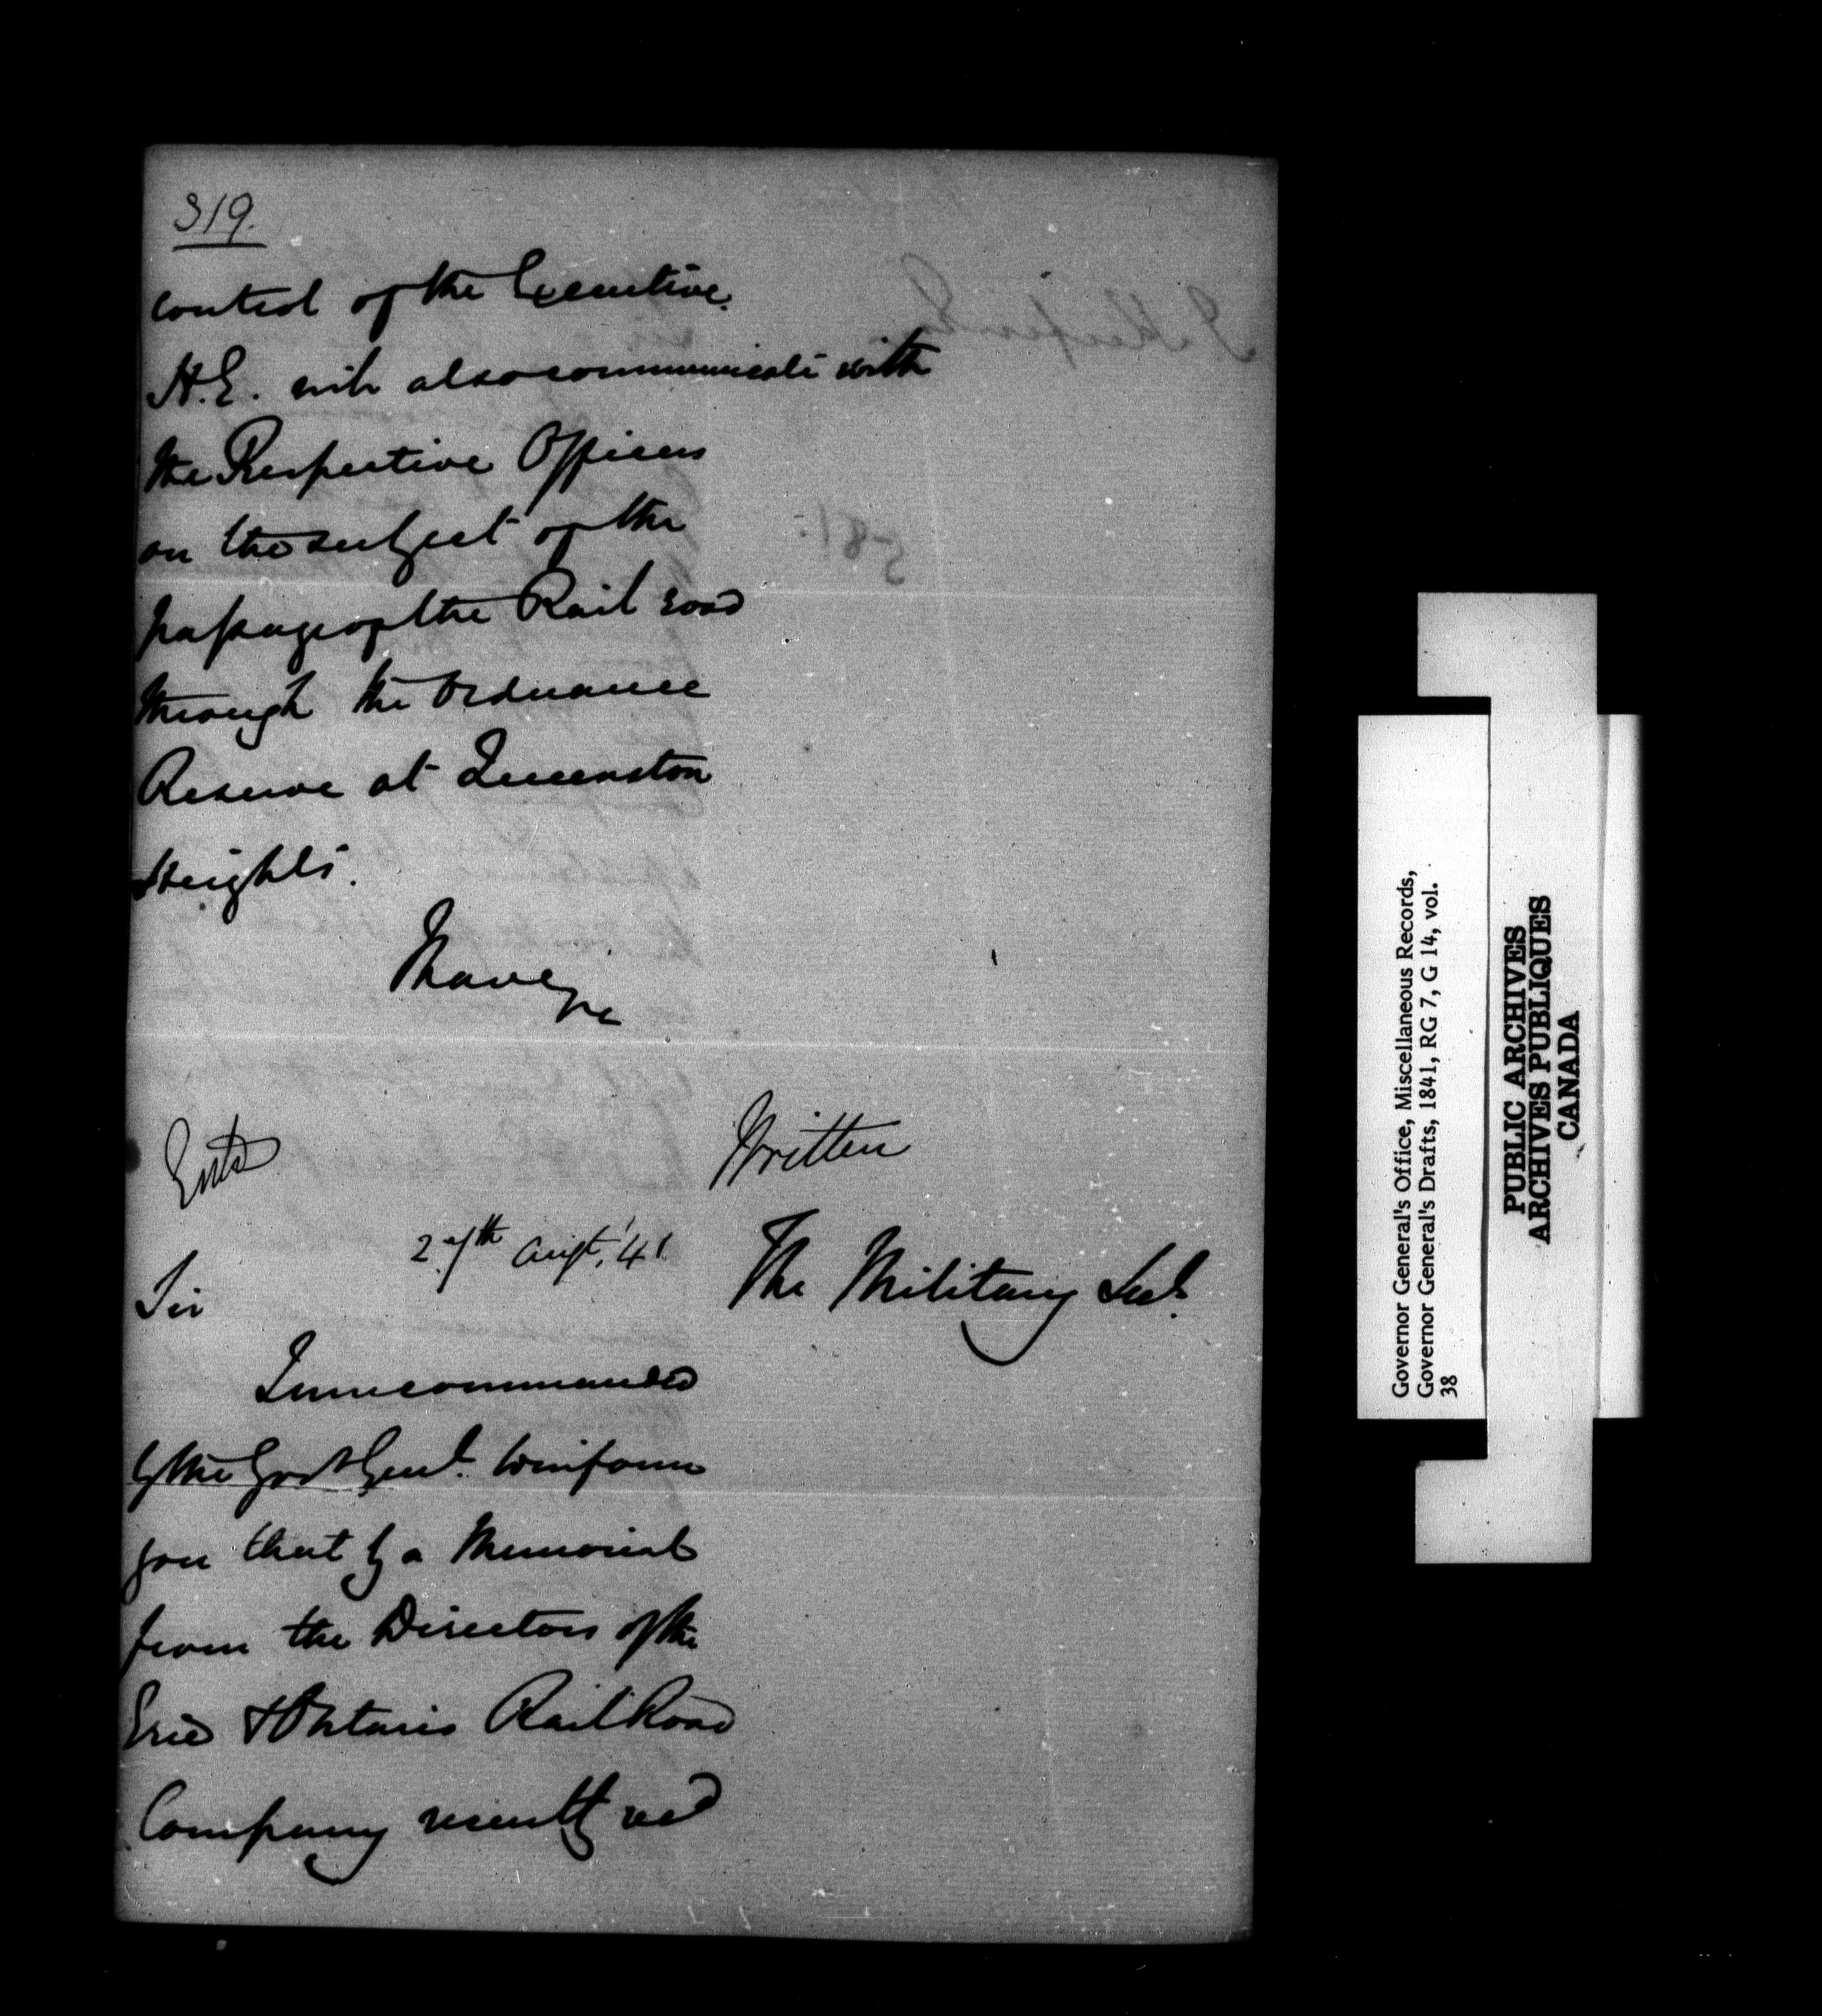 319.
control of the Executive.
H.E. will also communicate with
the Respective Officers
on the subject of the
passage of the Rail road
through the Ordnance
Reserve at Queenston
Heights.
I have &c
Entd
Written
27th Augt. '41
The Military Secy.
Sir
I am commanded
by the Govr Genl. to inform
you that by a Memorial
from the Directors of the
Erie & Ontario Rail Road
Company recently recd
Governor General's Office, Miscellaneous Records,
Governor General's Drafts, 1841, RG 7, G 14, vol.
38
PUBLIC ARCHIVES
ARCHIVES PUBLIQUES
CANADA